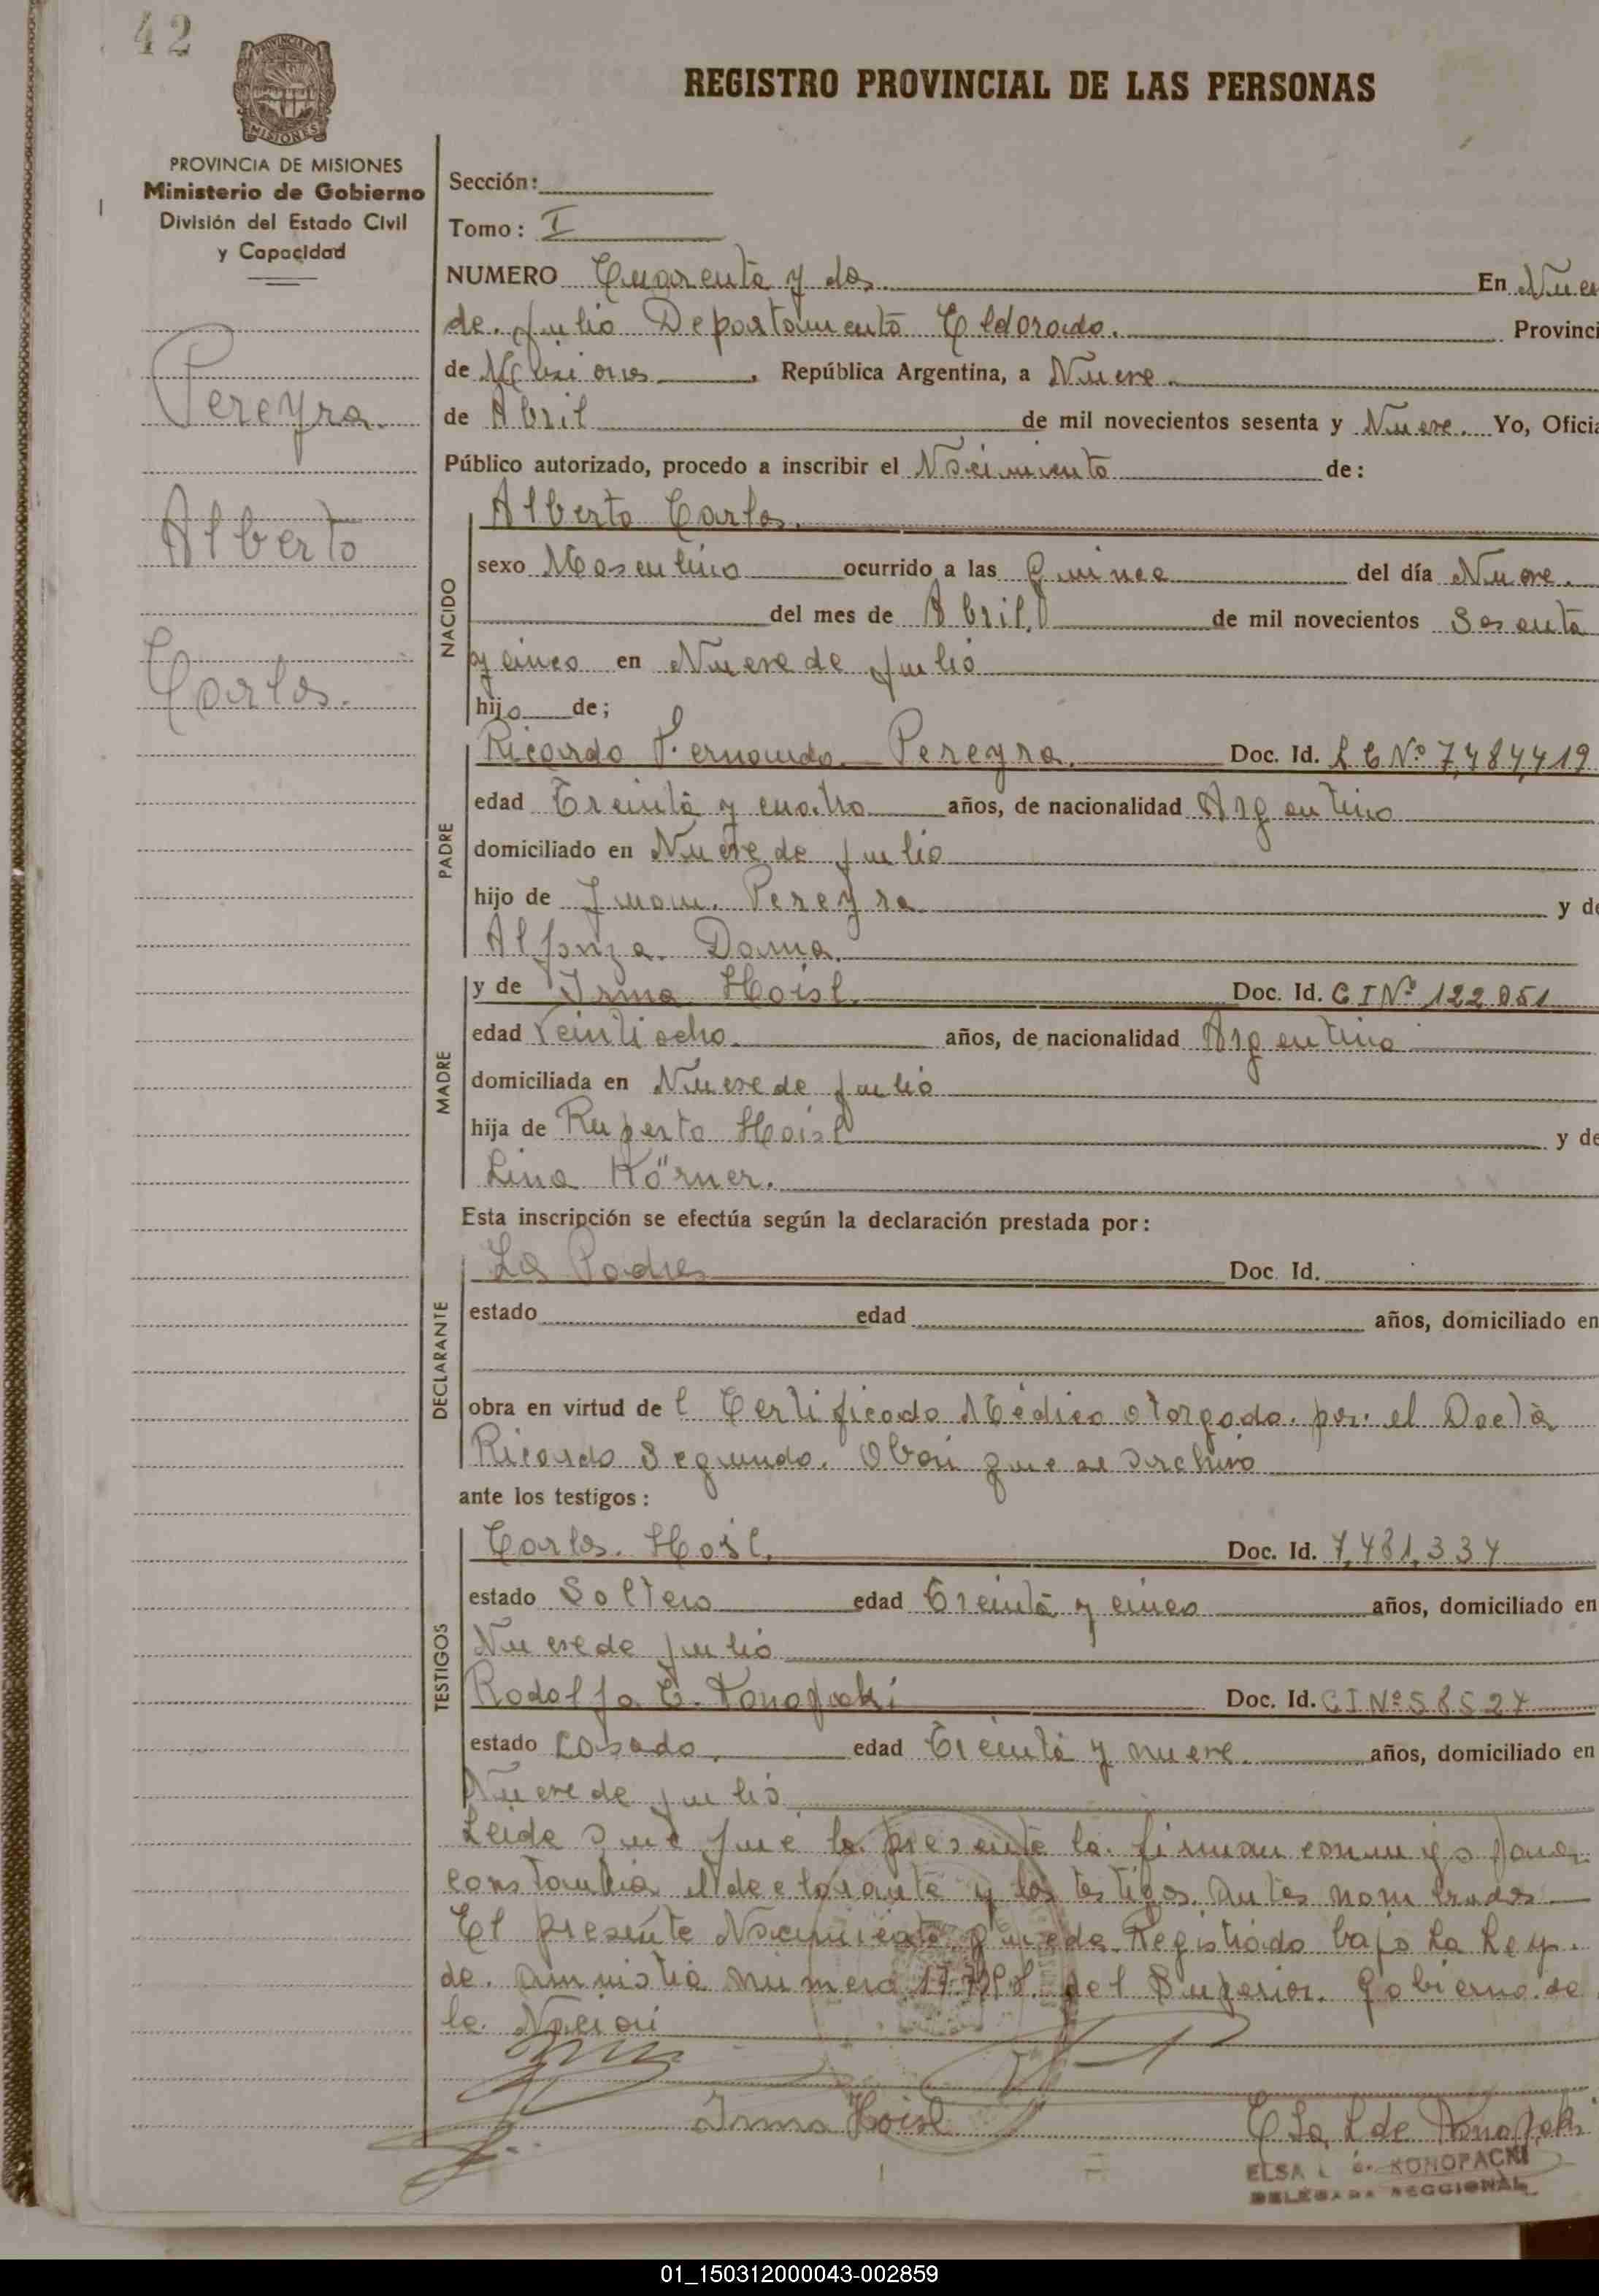 42
REGISTRO PROVINCIAL DE LAS PERSONAS
PROVINCIA DE MISIONES
Ministerio de Gobierno
División del Estado Civil
y Capacidad
Pereyra.
Alberto
Carlos.
Sección:
Tomo: I
NUMERO Cuarenta y dos. En Nue
de Julio Departamento Eldorado. Provinci
de Misiones, República Argentina, a Nueve
de Abril de mil novecientos sesenta y Nueve. Yo, Oficia
Público autorizado, procedo a inscribir el Nacimiento de:
NACIDO
Alberto Carlos.
sexo Masculino ocurrido a las Quince del día Nueve.
del mes de Abril. de mil novecientos Sesenta
y cinco en Nueve de Julio
hijo de;
PADRE
Ricardo Fernando Pereyra. Doc. Id. L E Nº 7,484,419
edad Treinta y cuatro años, de nacionalidad Argentino
domiciliado en Nueve de Julio
hijo de Juan. Pereyra y de
Alfonza. Dama.
MADRE
y de Irma Hoisl Doc. Id. C I Nº 122.051
edad Veintiocho. años, de nacionalidad Argentina
domiciliada en Nueve de Julio
hija de Ruperto Hoisl y de
Lina Körner.
Esta inscripción se efectúa según la declaración prestada por:
DECLARANTE
Los Padres Doc. Id.
estado edad años, domiciliado en
obra en virtud de l Certificado Médico otorgado por el Doctor
Ricardo Segundo. Obon que se archivo
ante los testigos:
TESTIGOS
Carlos. Hoisl. Doc. Id. 7,481,334
estado Soltero edad Treinta y cinco años, domiciliado en
Nueve de Julio
Rodolfo E. Konopaki Doc. Id. C I Nº 58527
estado Casado. edad Treinta y nueve. años, domiciliado en
Nueve de Julio
Leida que fue la presente la firman conmigo para
constancia el declarante y los testigos antes nombrados
El presente Nacimiento queda Registrado bajo La Ley.
de. amnistia numero del Superior. Gobierno de
la Nacion
Irma Hoisl
Elsa L de Konopaki
ELSA L. d. KONOPACKI
DELEGADA SECCIONAL
01_150312000043-002859